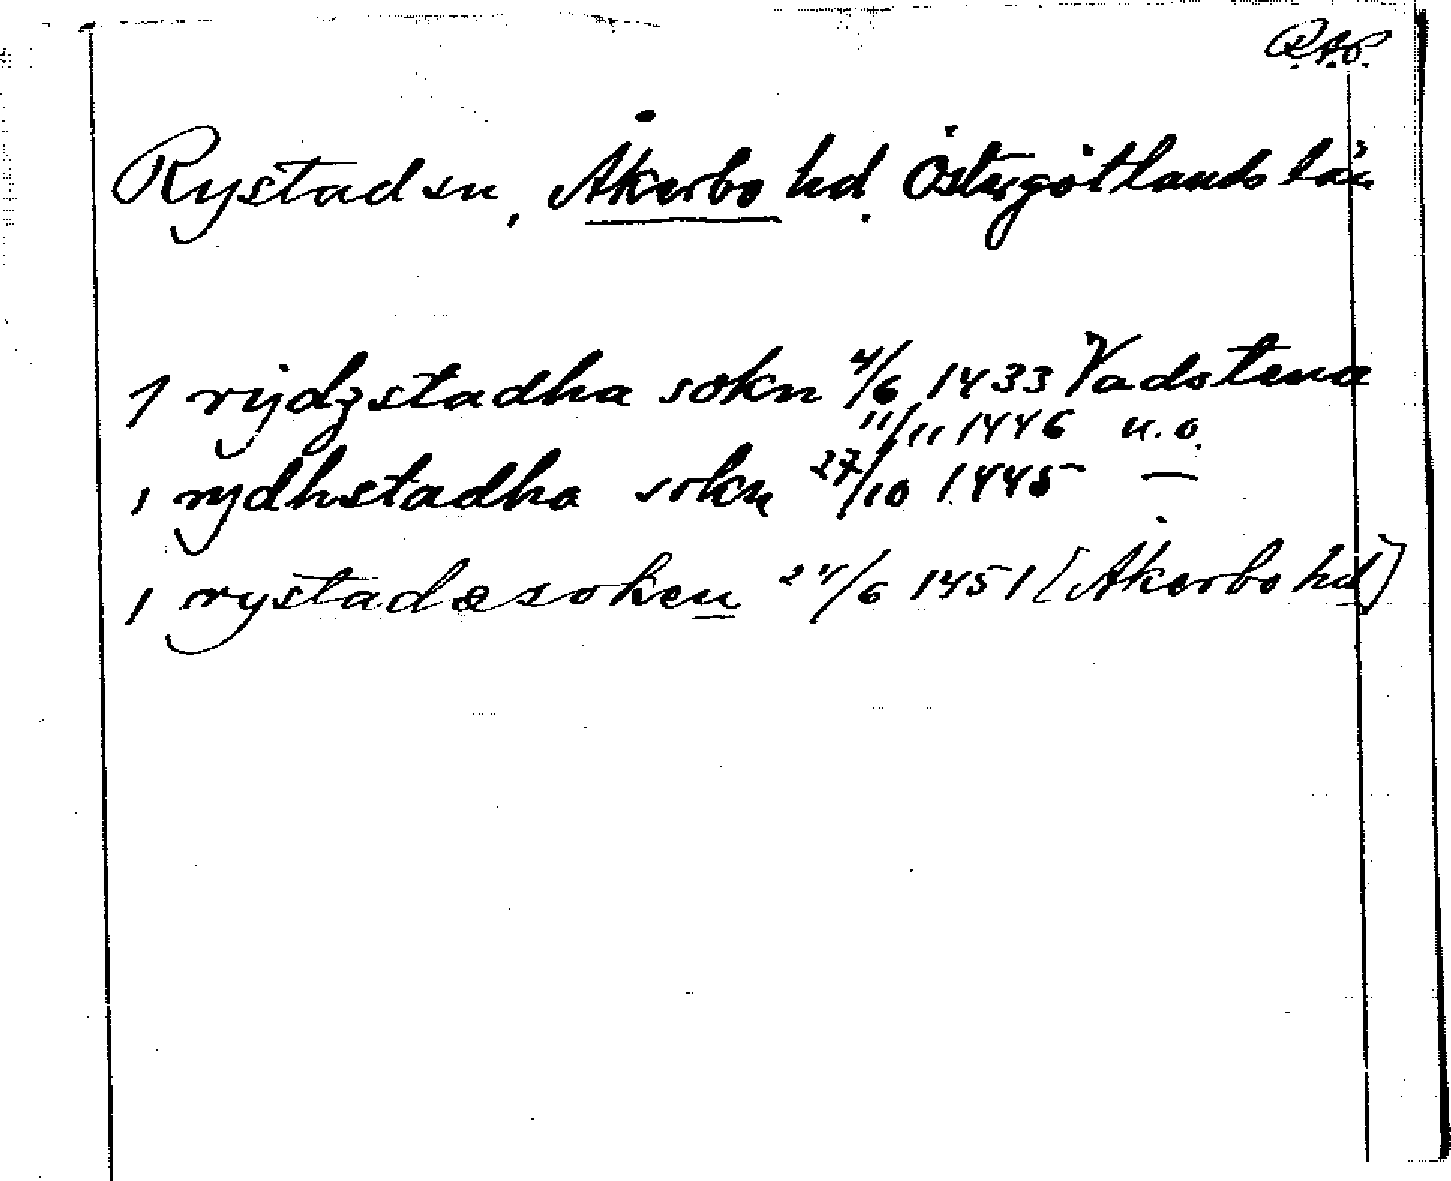 R.A.P.
Rystad sn, Åkerbo hd. Östergötlands län
1 rijdzstadha sokn 4/6 1433 Vadstena
11/11 1446 u.o.
1 rydhstadha sokn 27/10 1445 —
1 rystadæsoken 24/6 1451 [Åkerbo hd]